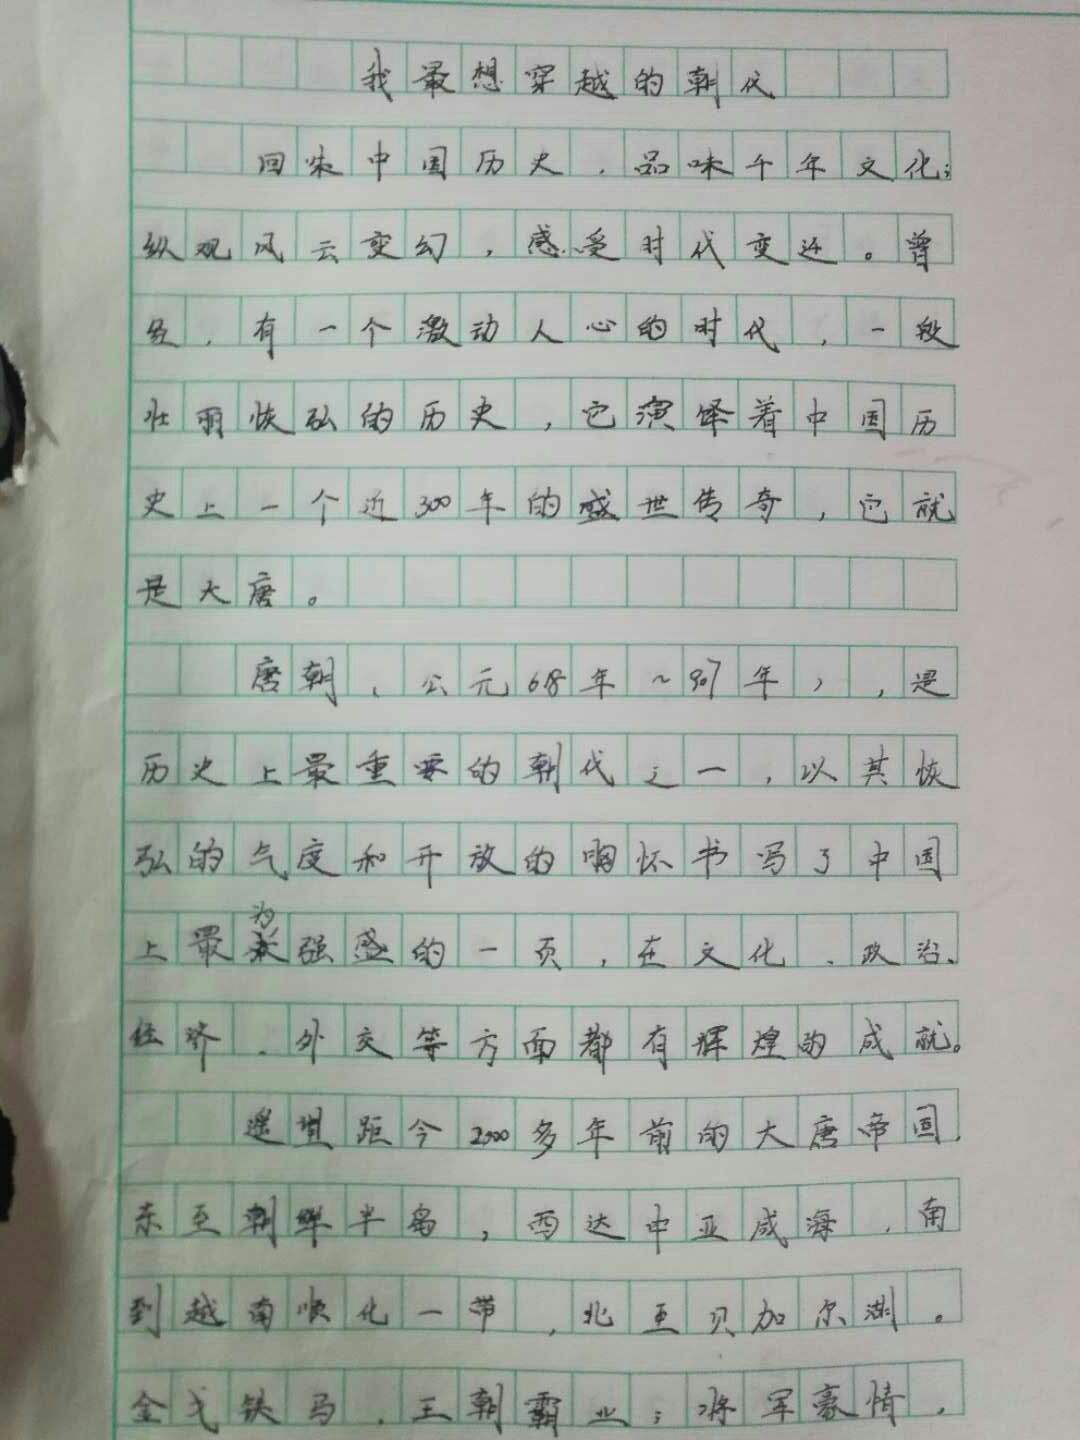 我最想穿越的朝代
回味中国历史，品味千年文化；
纵观风云变幻，感受时代变迁。曾
经，有一个激动人心的时代，一段
壮丽恢弘的历史，它演绎着中国历
史上一个近300年的盛世传奇，它就
是大唐。
唐朝，公元618年～907年），是
历史上最重要的朝代之一，以其恢
弘的气度和开放的胸怀书写了中国
上最为强盛的一页，在文化、政治、
经济、外交等方面都有辉煌的成就。
遥望距今2000多年前的大唐帝国，
东至朝鲜半岛，西达中亚咸海，南
到越南顺化一带，北至贝加尔湖。
金戈铁马，王朝霸业；将军豪情，